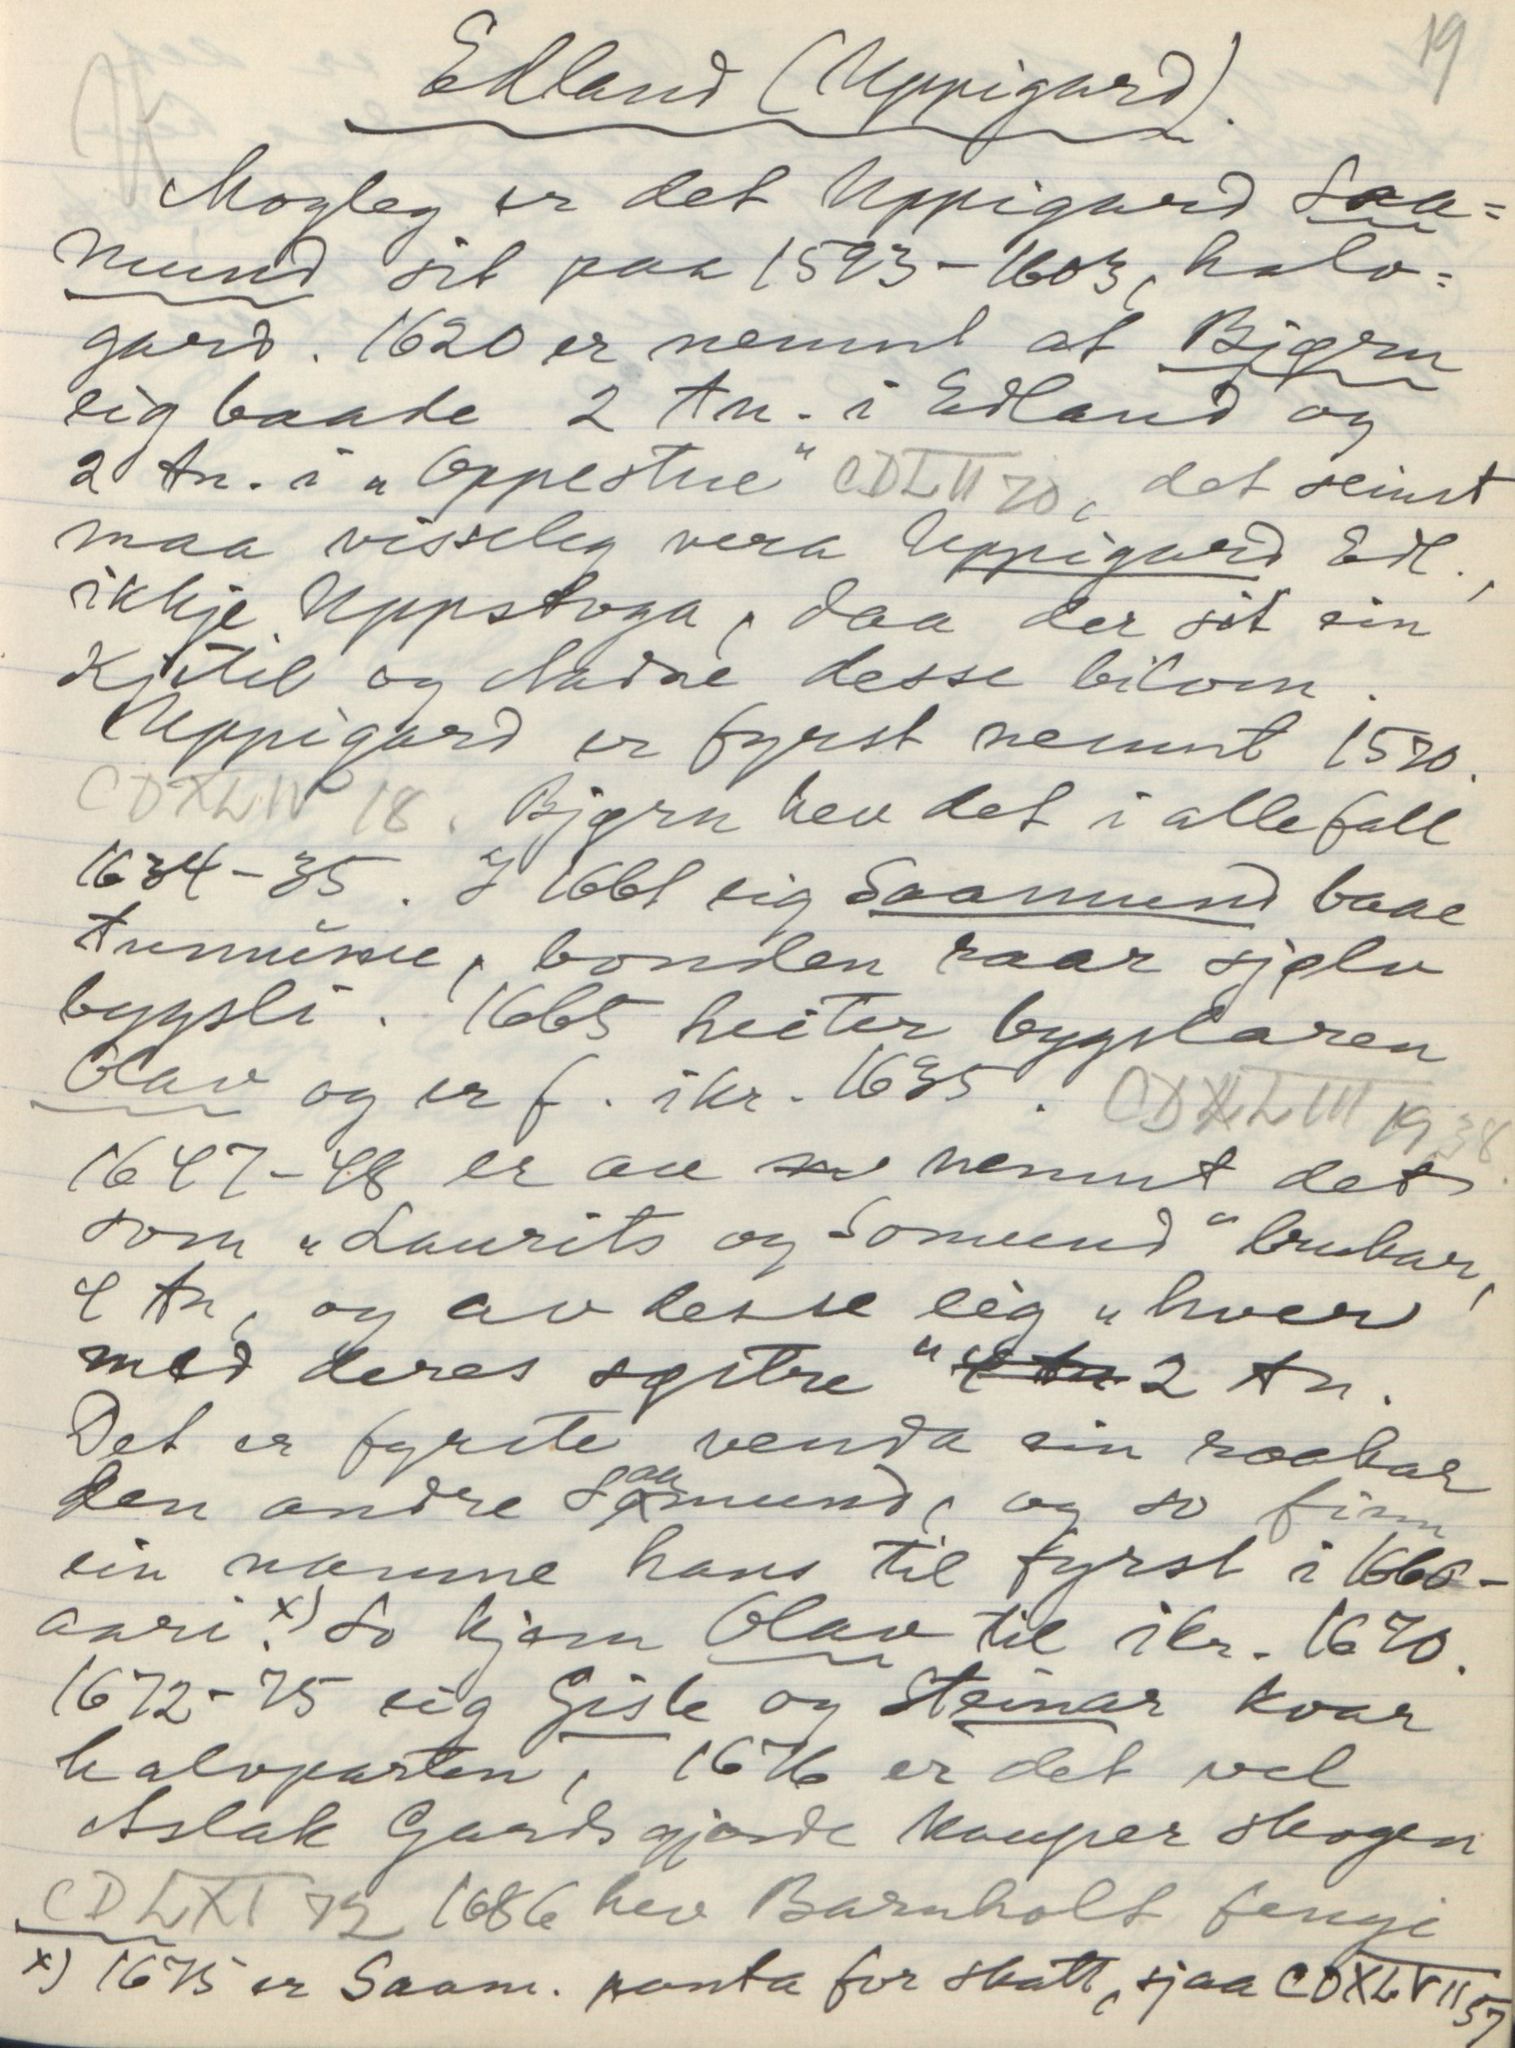 19
Edland (Uppigard).
Mogleg er det Uppigard Saa=
mund sit paa 1593-1603, halv=
gard. 1620 er nemnt at Bjørn
eig baade 2 tn. i Edland og
2 tn. i "Oppestue" CDLII 70, det seinst
maa visseleg vera Uppigard Edl.,
ikkje Uppstoga, daa der sit ein
Kjetil og Aadne desse bilom.
Uppigard er fyrst nemnt 1570.
CDXLIV 18. Bjørn hev det i allefall
1634-35. I 1661 eig Saamund baae
tunnune, bonden raar sjølv
bygsli. 1665 heiter bygslaren
Olav og er f. ikr. 1635. CDXLIII 19, 38.
1647-48 er au nemnt det
som "Laurits og Somund" brukar,
4 tn, og av desse eig "hver
med deres søstre" 2 tn.
Det er fyrste venda ein raakar
den andre Saamund, og so finn
ein namne hans til fyrst i 1660-
aari.x) So kjem Olav til ikr. 1670.
1672-75 eig Gisle og Steinar kvar
halvparten, 1676 er det vel
Aslak Gardsgjorde kauper skogen
CDLXI 72 1686 hev Barnholt fengi
x) 1675 er Saam. panta for skatt, sjaa CDXLVII 57